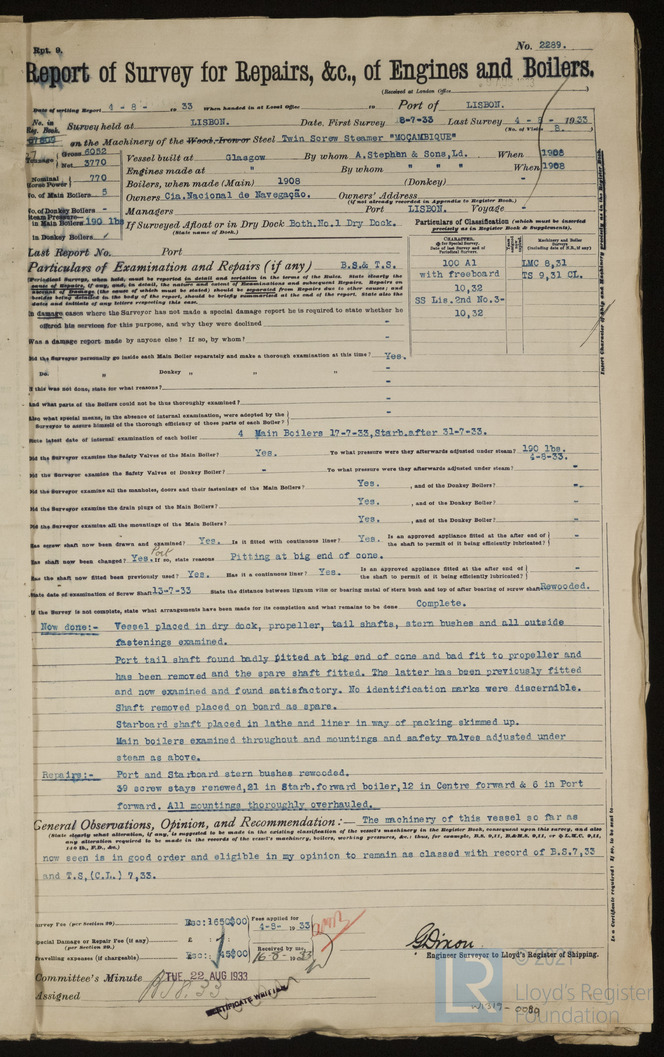 Rpt. 9.
No. 2289.
Report of Survey for Repairs, &c., of Engines and Boilers.
(Received at London Office
Date of writing Report 4-8- 1933 When handed in at Local Office 19 Port of LISBON.
No. in Reg. Book. Survey held at LISBON. Date, First Survey 8-7-33 Last Survey 4-8-1933
(No. of Visits 8.
on the Machinery of the Wood, Iron or Steel Twin Screw Steamer "MOÇAMBIQUE"
Tonnage Gross 6052 Net 3770
Vessel built at Glasgow By whom A.Stephen & Sons,Ld. When 1908
Engines made at " By whom " When 1908
Nominal Horse Power 770
Boilers, when made (Main) 1908 (Donkey) -
No. of Main Boilers 5
Owners Cia.Nacional de Navegação. Owners' Address
(if not already recorded in Appendix to Register Book.)
No. of Donkey Boilers -
Managers Port LISBON. Voyage -
Steam Pressure in Main Boilers 190 lbs
in Donkey Boilers
If Surveyed Afloat or in Dry Dock Both.No.1 Dry Dock.
(State name of Dock.)
Particulars of Classification (which must be inserted precisely as in Register Book & Supplements).
Last Report No. Port
Particulars of Examination and Repairs (if any) B.S.& T.S.
100 A1
with freeboard
10,32
SS Lis.2nd No.3-
10,32
LMC 8,31
TS 9,31 CL.
In damage cases where the Surveyor has not made a special damage report he is required to state whether he
offered his services for this purpose, and why they were declined -
Was a damage report made by anyone else? If so, by whom? -
Did the Surveyor personally go inside each Main Boiler separately and make a thorough examination at this time? Yes.
Do. " Donkey " " " -
If this was not done, state for what reasons? -
And what parts of the Boilers could not be thus thoroughly examined? -
Also what special means, in the absence of internal examination, were adopted by the
Surveyor to assure himself of the thorough efficiency of those parts of each Boiler? -
State latest date of internal examination of each boiler 4 Main Boilers 17-7-33,Starb.after 31-7-33.
Did the Surveyor examine the Safety Valves of the Main Boiler? Yes. To what pressure were they afterwards adjusted under steam? 190 lbs. 4-8-33.
Did the Surveyor examine the Safety Valves of Donkey Boiler? - To what pressure were they afterwards adjusted under steam? -
Did the Surveyor examine all the manholes, doors and their fastenings of the Main Boilers? Yes. , and of the Donkey Boiler? -
Did the Surveyor examine the drain plugs of the Main Boilers? Yes. , and of the Donkey Boiler? -
Did the Surveyor examine all the mountings of the Main Boilers? Yes. , and of the Donkey Boiler? -
Has screw shaft now been drawn and examined? Yes. Is it fitted with continuous liner? Yes. Is an approved appliance fitted at the after end of the shaft to permit of it being efficiently lubricated? -
Has shaft now been changed? Yes. Port If so, state reasons Pitting at big end of cone.
Has the shaft now fitted been previously used? Yes. Has it a continuous liner? Yes. Is an approved appliance fitted at the after end of the shaft to permit of it being efficiently lubricated? -
State date of examination of Screw Shaft 13-7-33 State the distance between lignum vitæ or bearing metal of stern bush and top of after bearing of screw shaft Rewooded.
If the Survey is not complete, state what arrangements have been made for its completion and what remains to be done Complete.
Now done:- Vessel placed in dry dock, propeller, tail shafts, stern bushes and all outside
fastenings examined.
Port tail shaft found badly pitted at big end of cone and bad fit to propeller and
has been removed and the spare shaft fitted. The latter has been previously fitted
and now examined and found satisfactory. No identification marks were discernible.
Shaft removed placed on board as spare.
Starboard shaft placed in lathe and liner in way of packing skimmed up.
Main boilers examined throughout and mountings and safety valves adjusted under
steam as above.
Repairs:- Port and Starboard stern bushes rewooded.
39 screw stays renewed,21 in Starb.forward boiler,12 in Centre forward & 6 in Port
forward. All mountings thoroughly overhauled.
General Observations, Opinion, and Recommendation:— The machinery of this vessel so far as
now seen is in good order and eligible in my opinion to remain as classed with record of B.S.7,33
and T.S,(C.L.) 7,33.
Survey Fee (per Section 29) Esc:1650$00 Fees applied for 4-8-1933
Special Damage or Repair Fee (if any) (per Section 29.) £ : :
Travelling expenses (if chargeable) Esc: 45$00 Received by me, 16-8-1933
G Dixon.
Engineer Surveyor to Lloyd's Register of Shipping.
Committee's Minute TUE. 22 AUG 1933
Assigned
CERTIFICATE WRITTEN
© 2021
LR
Lloyd's Register
Foundation
0089